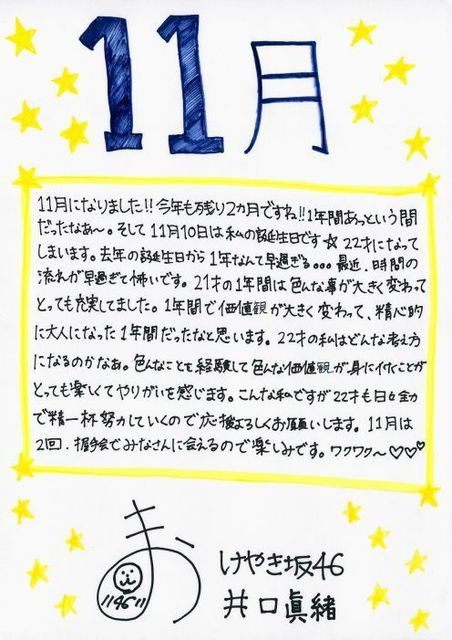 11月
11月になりました!!今年も残り2ヵ月ですね!!1年間あっという間
だったなあ〜。そして11月10日は私の誕生日です☆22才になって
しまいます。去年の誕生日から1年なんて早過ぎる。。。最近、時間の
流れが早過ぎて怖いです。21才の1年間は色んな事が大きく変わって
とっても充実してました。1年間で価値観が大きく変わって、精心的
に大人になった1年間だったなと思います。22才の私はどんな考え方
になるのかなあ。色んなことを経験して色んな価値観が身に付くことが
とっても楽しくてやりがいを感じます。こんな私ですが22才も日々全力
で精一杯努力していくので応援よろしくお願いします。11月は
2回、握手会でみなさんに会えるので楽しみです。ワクワク〜♡♡♡
ま お
"46"
けやき坂46
井口眞緒